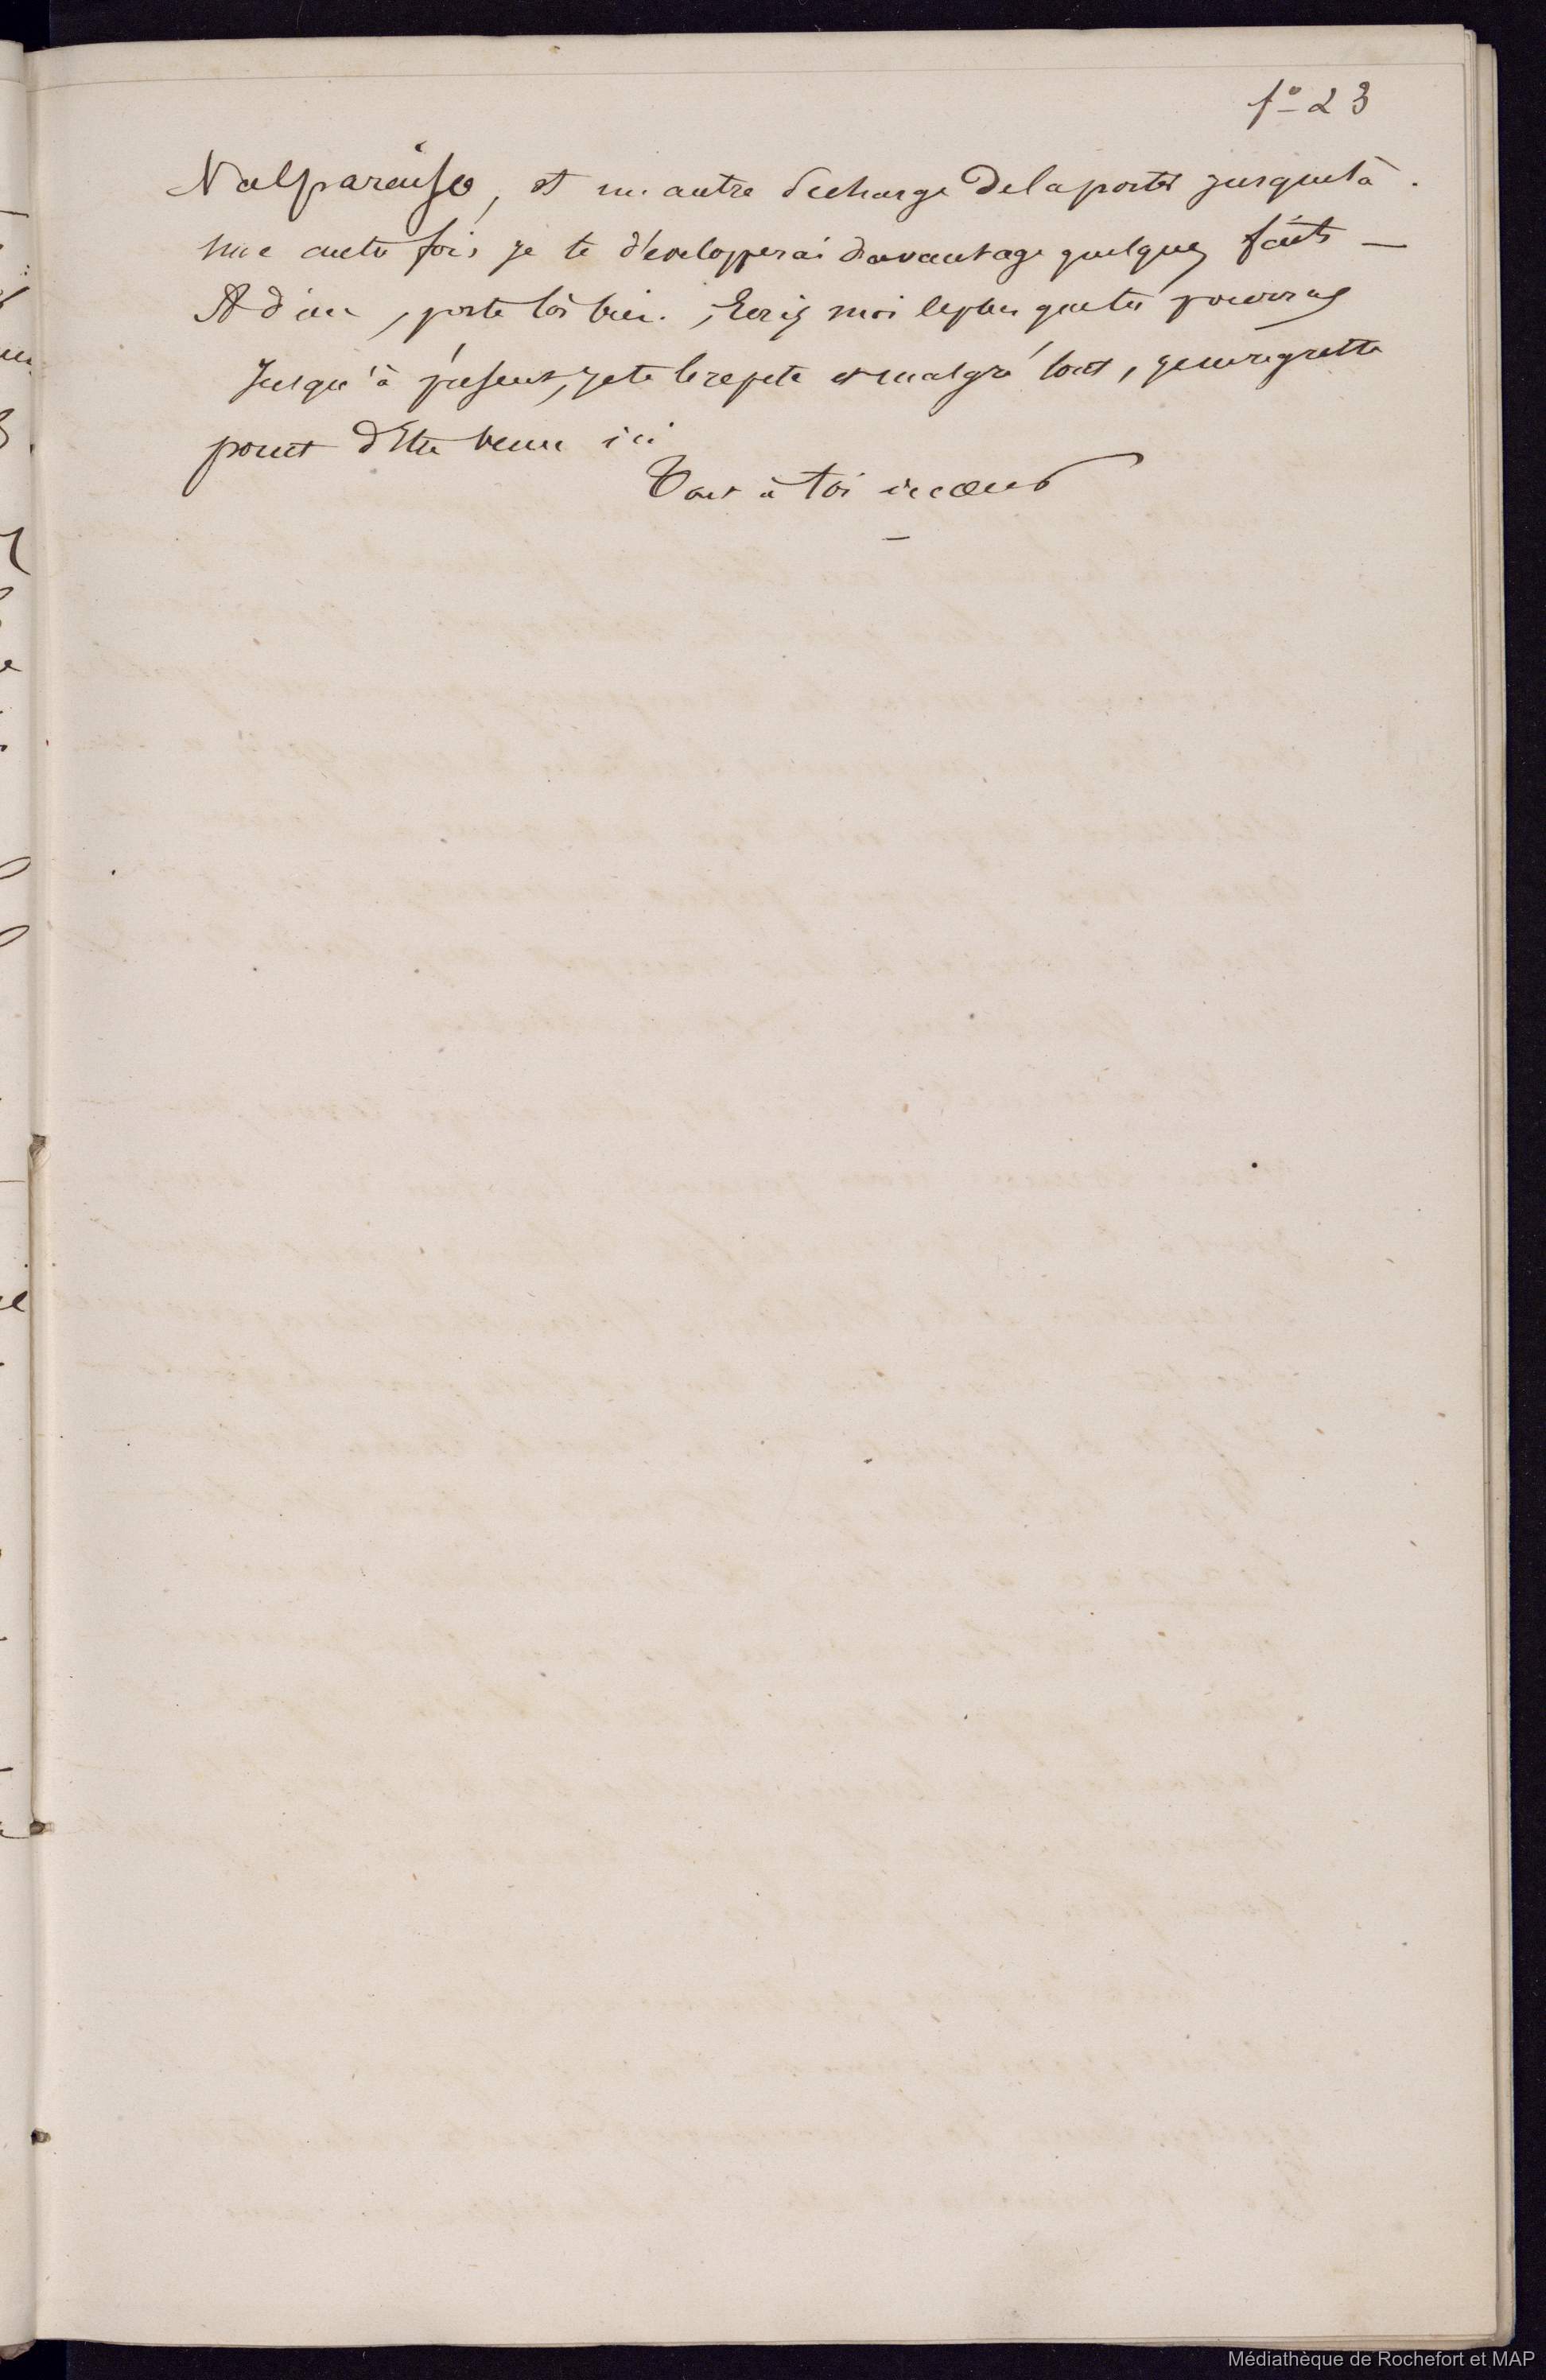 f° 23
Valparaiso, et un autre décharge de la porter jusque là.
Une autre fois je te développerai davantage quelques faits —
Adieu, porte toi bien. Ecris moi le plus que tu pourras
Jusqu'à présent, je te le repete et malgré tout, je ne regrette
point d'Etre venu ici
Tout à toi de coeur
Médiathèque de Rochefort et MAP